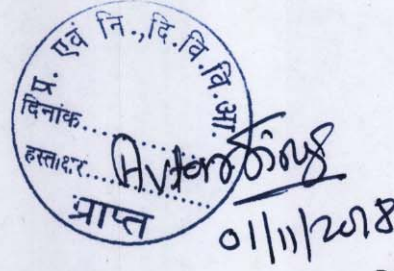 प्र. एवं नि.,दि.वि.वि.आ.
दिनांक.....
हस्ताक्षर....
प्राप्त
01/11/2018